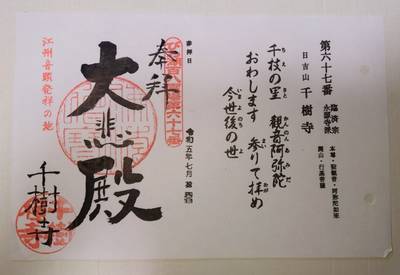 第六十七番 臨済宗
永源寺派
本尊・聖観音・阿弥陀如来
開山・行基菩薩
日吉山 千樹寺
千枝の里 観音阿弥陀
おわします 参りて拝め
今世後の世
参拝日
令和五年七月
奉拝
大悲殿
千樹寺
江州音頭発祥の地